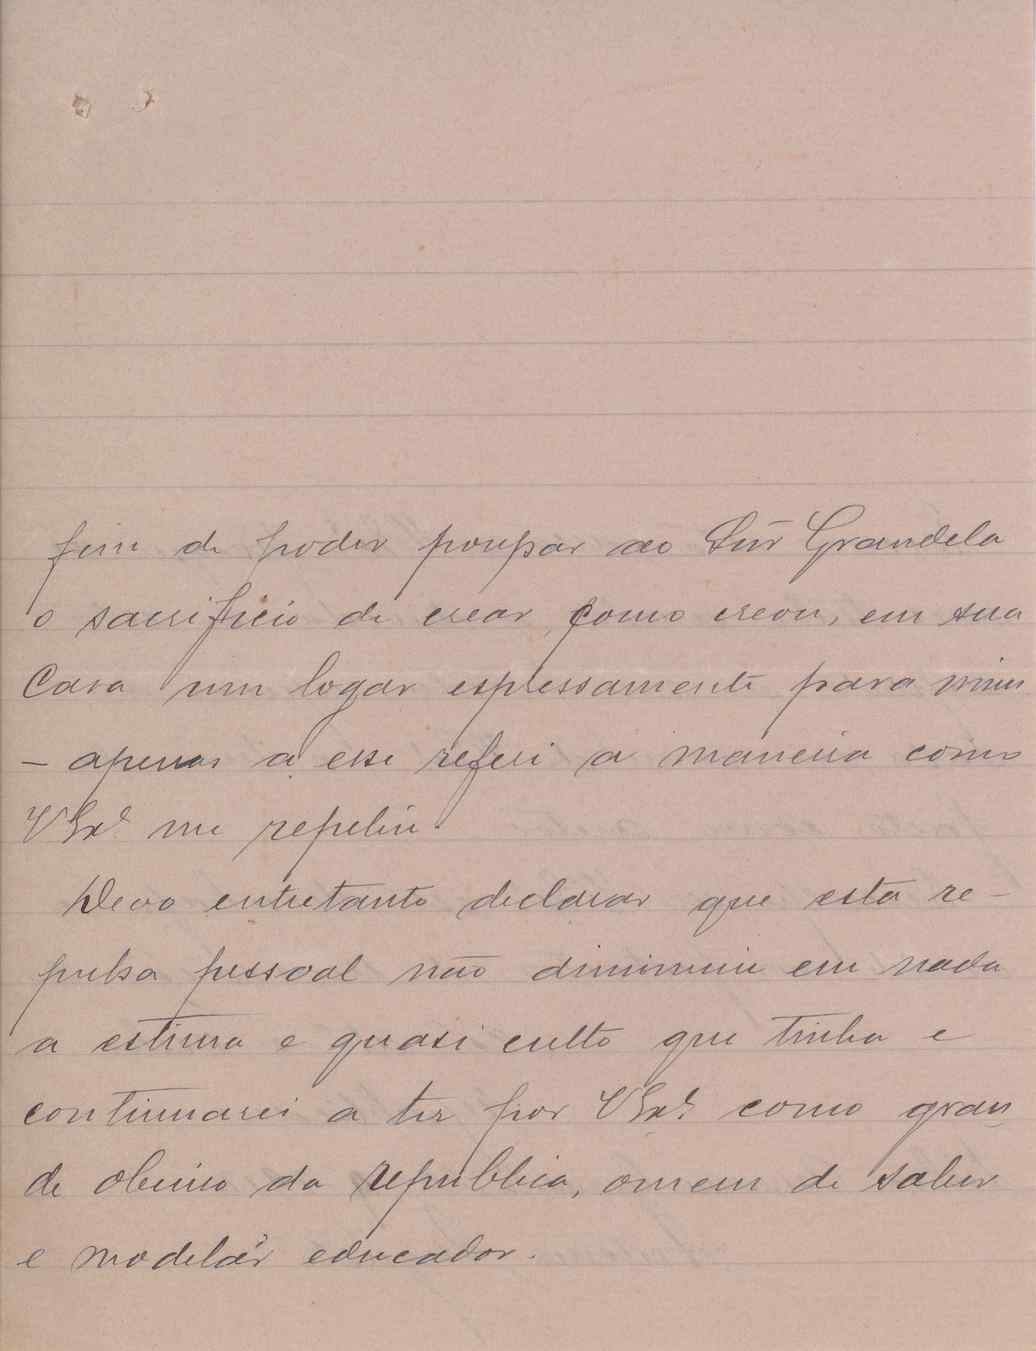 fim de poder poupar ao Snr Grandela
o sacrificio de crear, como creou, em sua
Casa um logar espressamente para mim
– apenas a esse referi a maneira como
V Exª me repeliu.
Devo entretanto declarar que esta re-
pulsa pessoal não diminuiu em nada
a estima e quasi culto que tinha e
continuarei a ter por V Exª como gran
de obreiro da republica, omem de saber
e modelár educador.